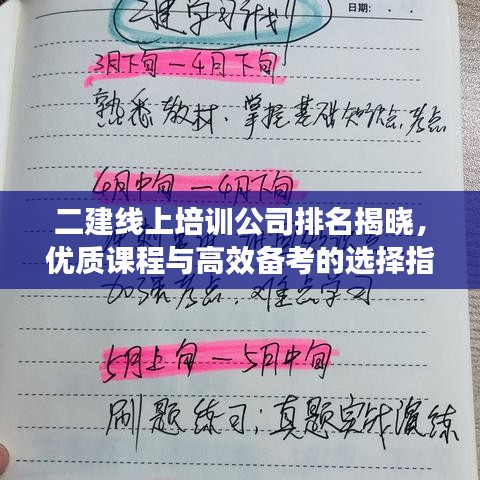 二建学习计划
日期：
3月下旬—4月下旬
熟悉教材、掌握基础知识点、考点
4月中旬—4月下旬
二建线上培训公司排名揭晓，
优质课程与高效备考的选择指
加强考点、难点学习
5月上旬—5月中旬
刷题练习；真题实战演练